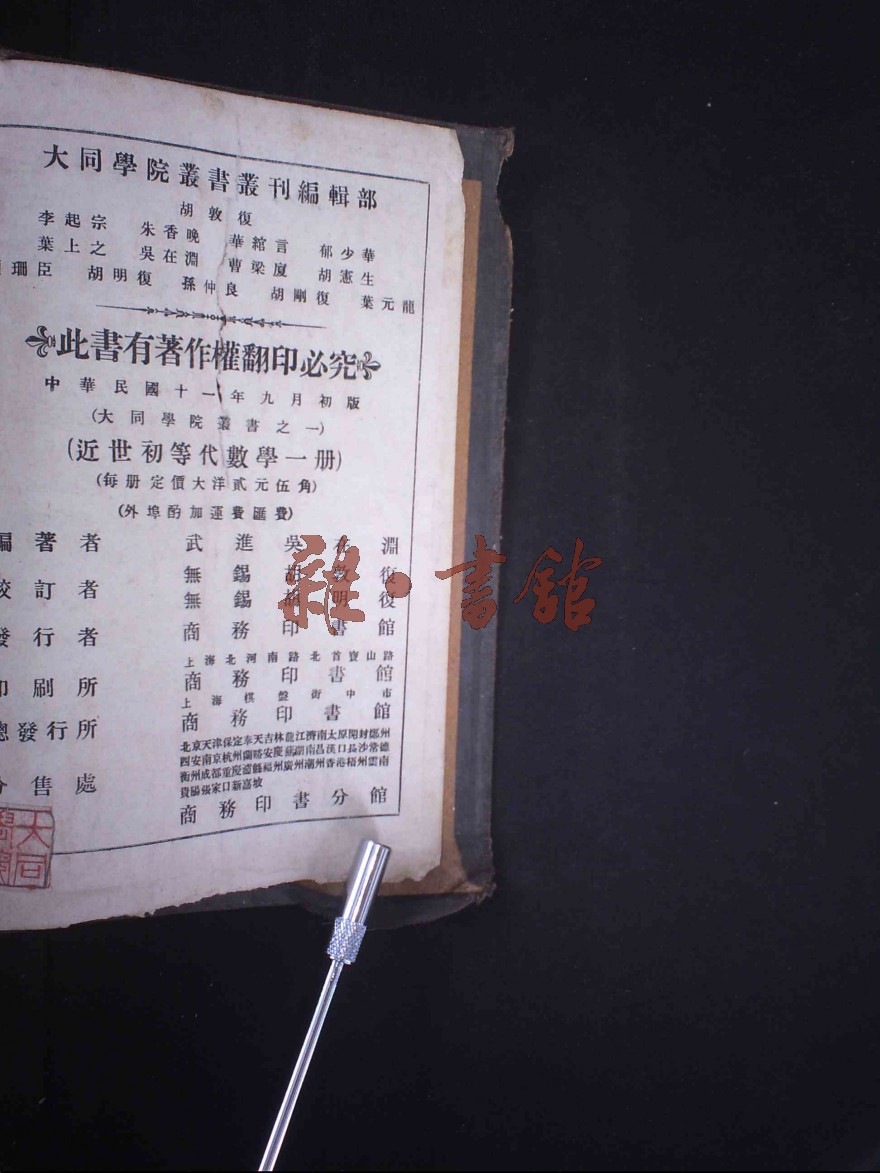 大同學院叢書叢刊編輯部
胡敦復
李起宗 朱香晚 華綰言 郁少華
葉上之 吳在淵 曹梁廈 胡憲生
珊臣 胡明復 孫仲良 胡剛復 葉元龍
此書有著作權翻印必究
中華民國十一年九月初版
(大同學院叢書之一)
(近世初等代數學一册)
(每册定價大洋貳元伍角)
(外埠酌加運費匯費)
編著者 武進吳在淵
校訂者 無錫胡敦復
無錫胡明復
發行者 商務印書館
上海北河南路北首寶山路
印刷所 商務印書館
上海棋盤街中市
總發行所 商務印書館
北京天津保定奉天吉林龍江濟南太原開封鄭州
西安南京杭州蘭谿安慶蕪湖南昌漢口長沙常德
衡州成都重慶瀘縣福州廣州潮州香港梧州雲南
貴陽張家口新嘉坡
分售處 商務印書分館
大同
雜·書館